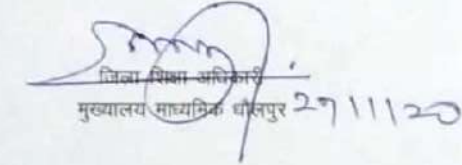 जिला शिक्षा अधिकारी
मुख्यालय माध्यमिक धौलपुर 27/11/20